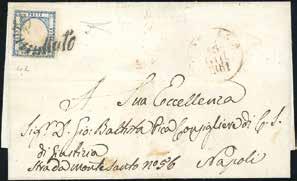 POSTE
Annullato
A Sua Eccellenza
Sigr. D. Gio: Battista Vica Consigliere di C. S.
di Giustizia
Strada Monte Santo no. 56
Napoli